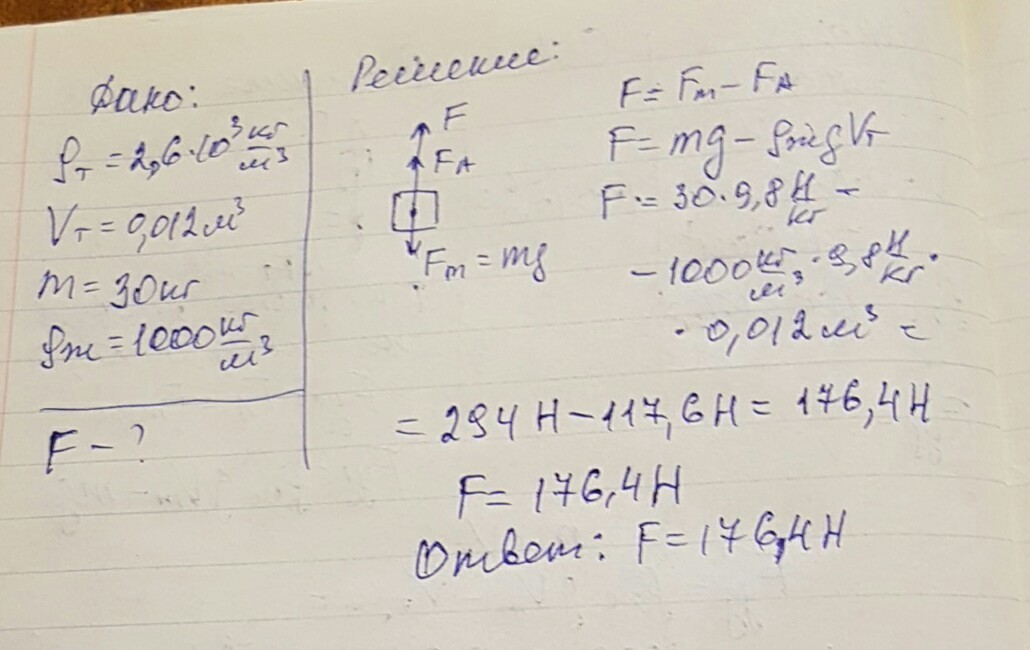 Дано:
ρт = 2,6·10³ кг/м³
Vт = 0,012 м³
m = 30 кг
ρж = 1000 кг/м³
F – ?
Решение:
F
FA
Fт = mg
F = Fт – FA
F = mg – ρжgVт
F = 30·9,8 Н/кг –
– 1000 кг/м³ · 9,8 Н/кг ·
· 0,012 м³ =
= 294 Н – 117,6 Н = 176,4 Н
F = 176,4 Н
Ответ: F = 176,4 Н